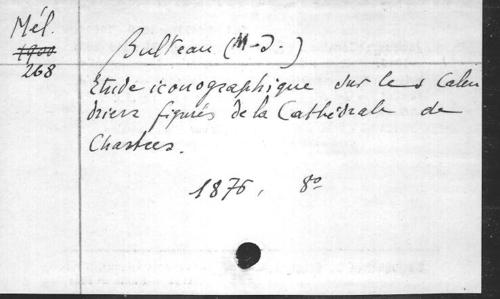 Mél.
1900
268
Bulteau (M-J.)
Etude iconographique sur les Calen
driers figurés de la Cathédrale de
Chartres.
1876, 8°